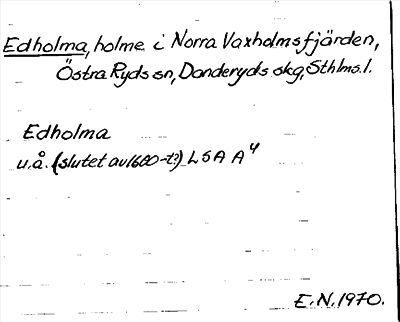 Edholma, holme i Norra Vaxholmsfjärden,
Östra Ryds sn, Danderyds skg, Sthlms l.
Edholma
u.å. (slutet av 1600-t?) LSA A4
E.N. 1970.